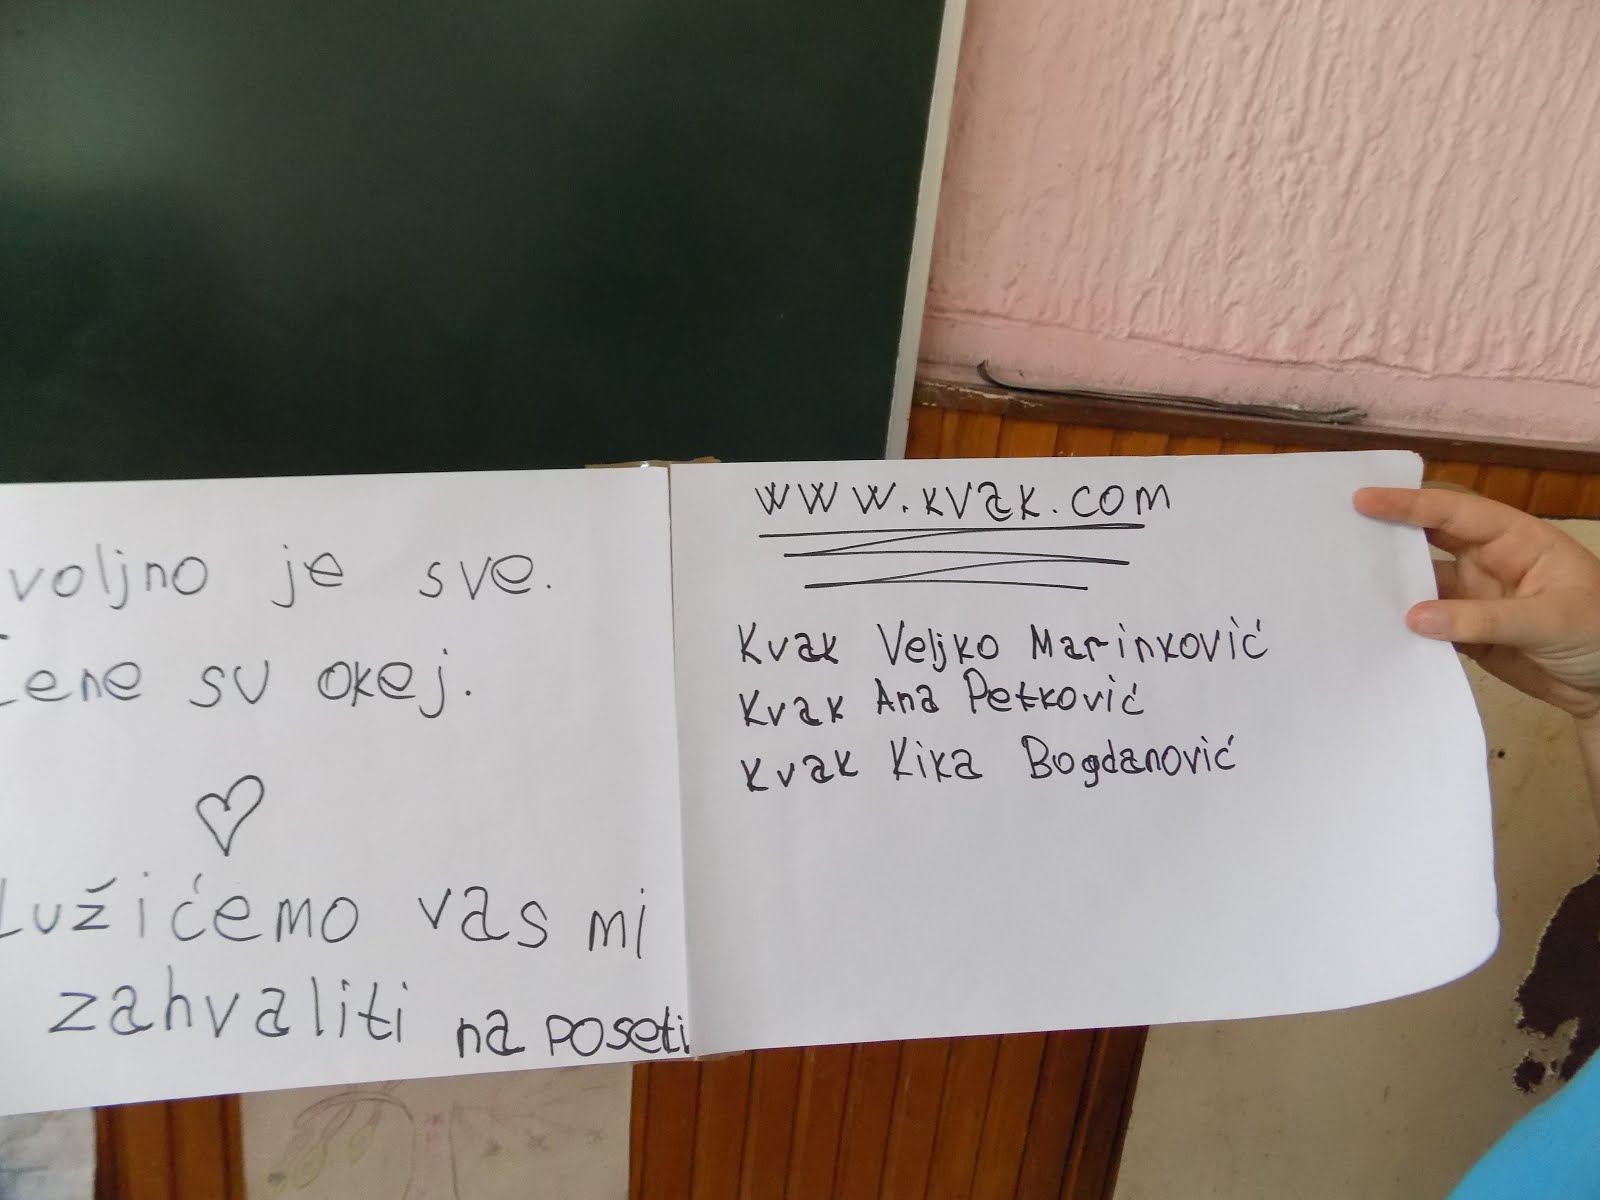 voljno je sve.
ene su okej.
lužićemo vas mi
zahvaliti na poseti
www.kvak.com
Kvak Veljko Marinković
Kvak Ana Petković
Kvak Kika Bogdanović